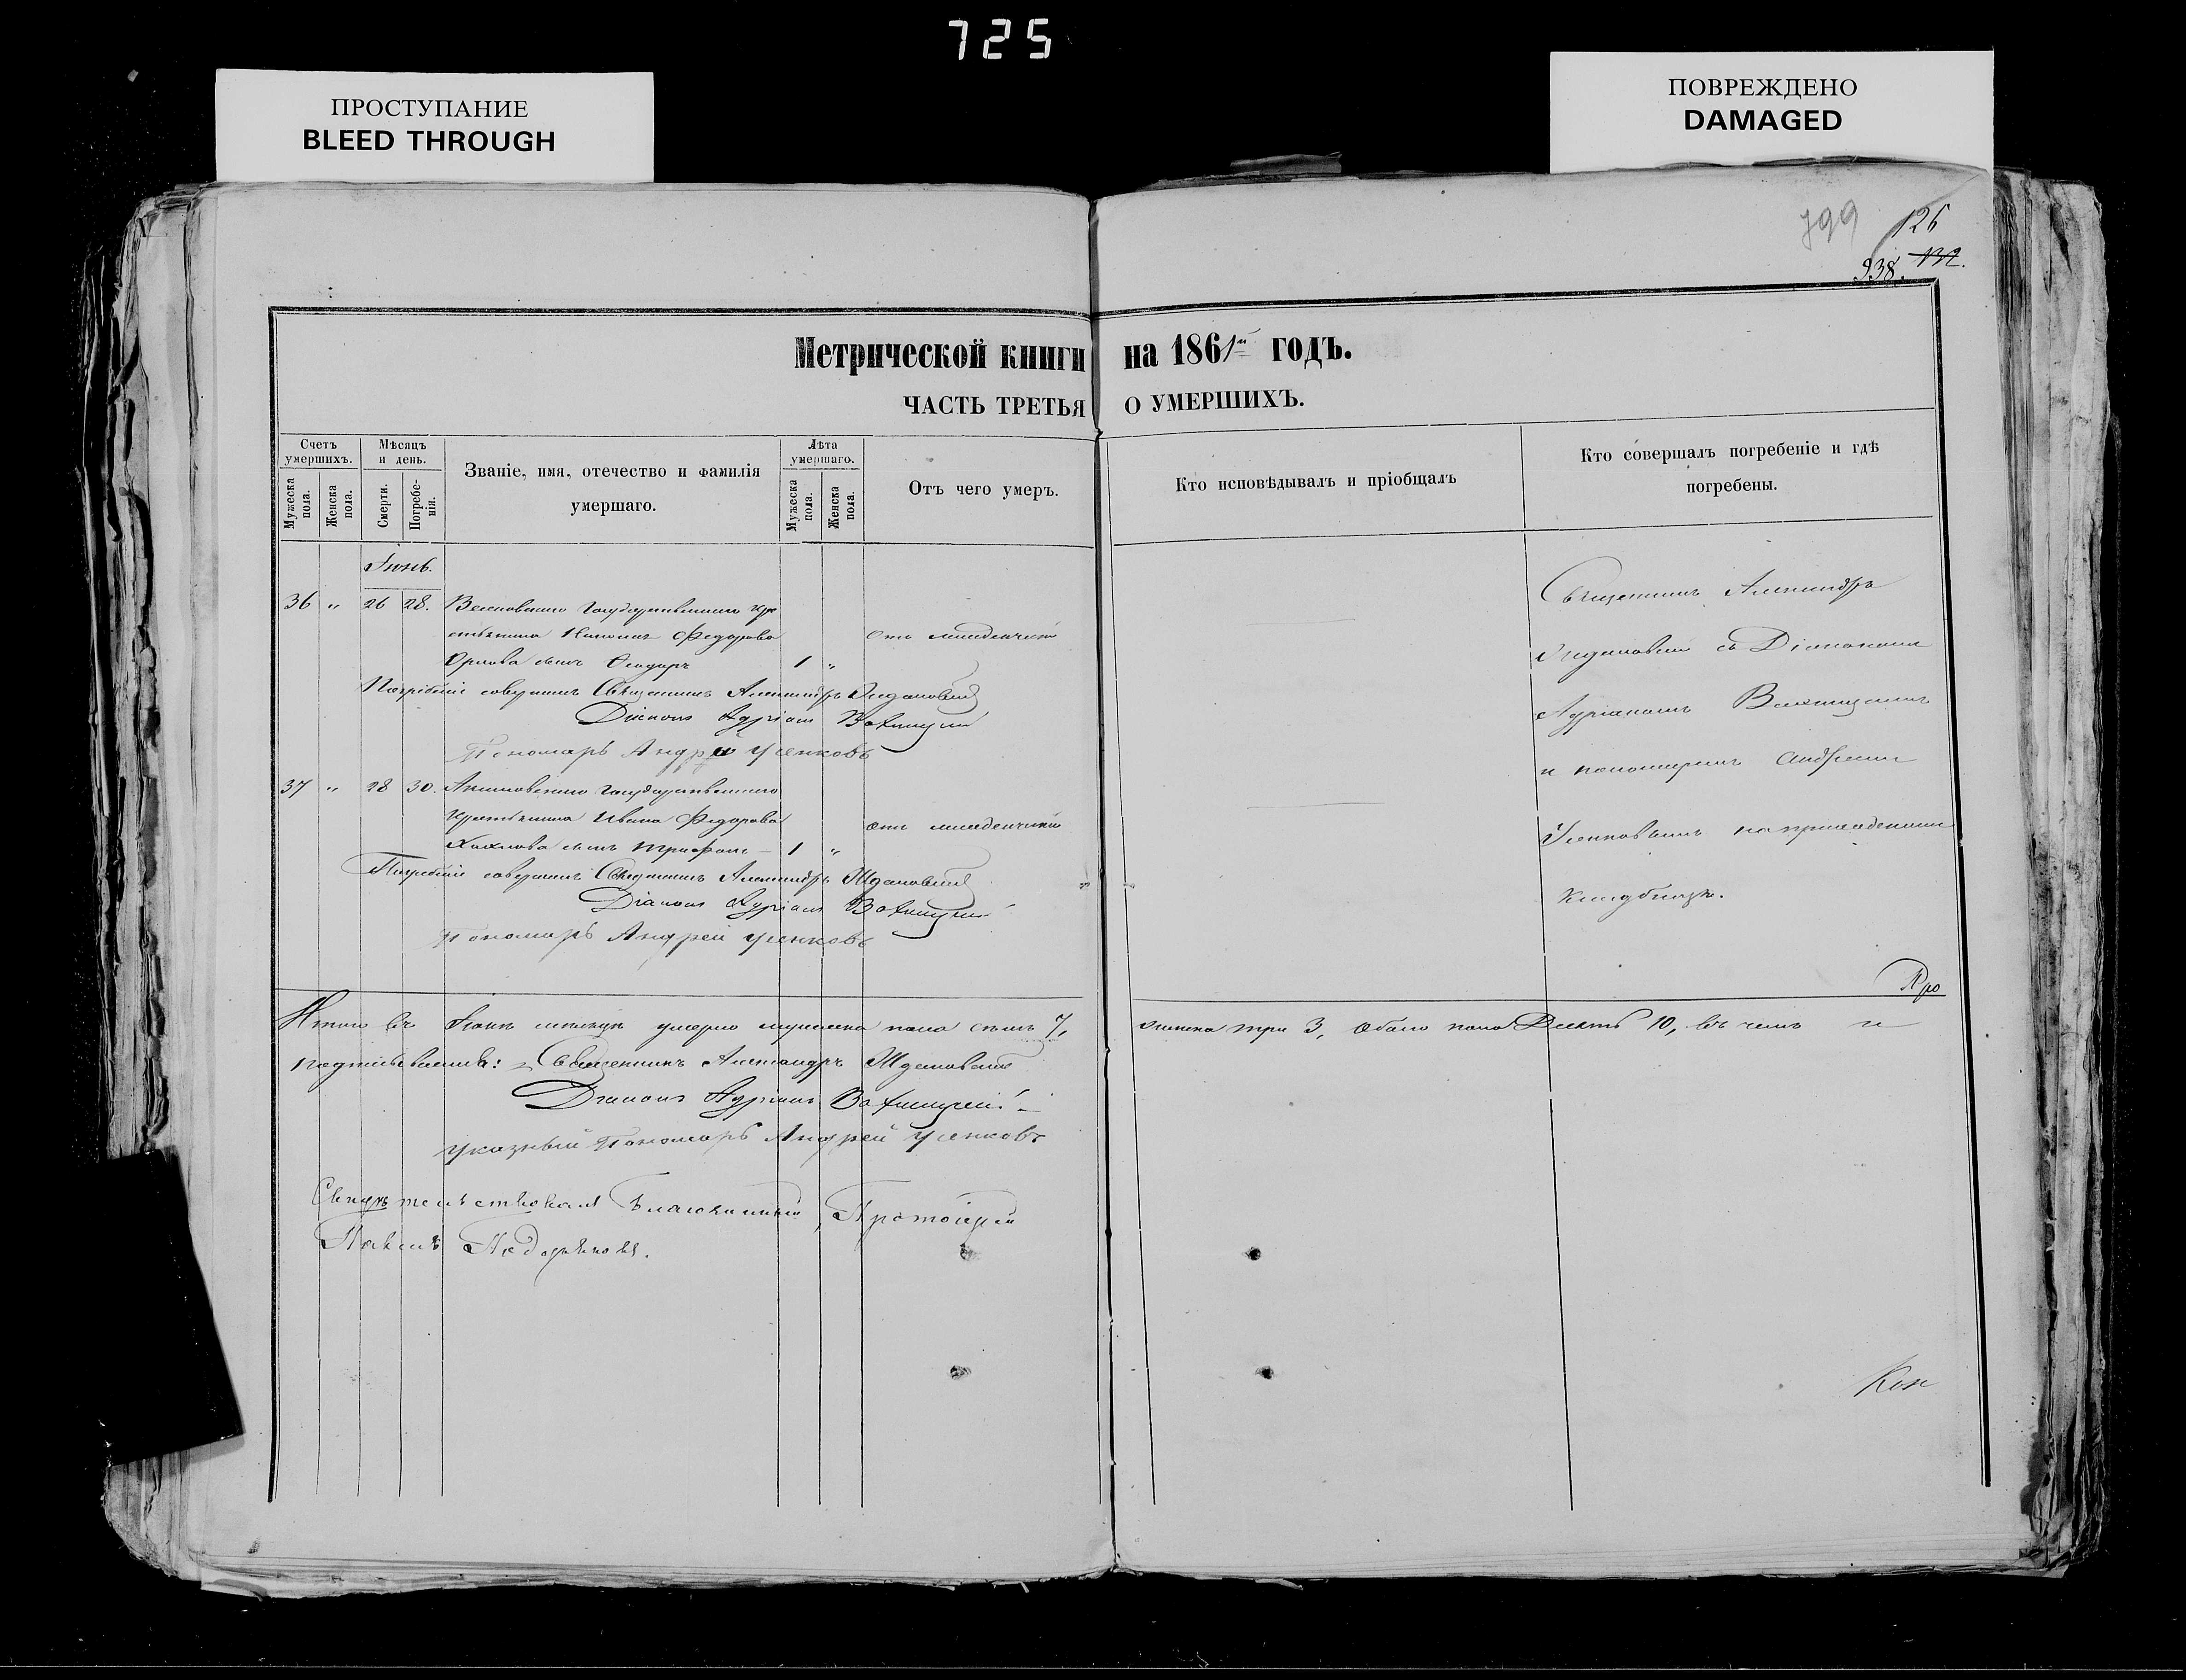 725
ПРОСТУПАНИЕ
BLEED THROUGH
ПОВРЕЖДЕНО
DAMAGED
799
126
938. 132.
Метрической книги на 1861й годъ.
ЧАСТЬ ТРЕТЬЯ О УМЕРШИХЪ.
Счетъ умершихъ.
Мужеска пола.
Женска пола.
Мѣсяцъ и день.
Смерти.
Погребенія.
Званіе, имя, отечество и фамилія умершаго.
Лѣта умершаго.
Мужеска пола.
Женска пола.
Отъ чего умеръ.
Кто исповѣдывалъ и пріобщалъ
Кто совершалъ погребеніе и гдѣ погребены.
Іюнь.
36 " 26 28. Государственнаго кре
стьянина Федорова отъ младенческой
Орлова сынъ Ѳеодоръ 1 "
Погребеніе совершалъ Священникъ Александръ Ждановскій
Діаконъ Адріанъ
Пономарь Андрей Усенковъ
37 " 28 30. Государственнаго
крестьянина Ивана Федорова отъ младенческой
сынъ Трифонъ 1 "
Погребеніе совершалъ Священникъ Александръ Ждановскій
Діаконъ Адріанъ
Пономарь Андрей Усенковъ
Священникъ Александръ
Ждановскій съ Діакономъ
Адріаномъ
и пономаремъ Андреемъ
Усенковымъ на приходскомъ
кладбищѣ.
Про
Итого въ Іюнѣ мѣсяцѣ умерло мужеска пола семь 7, женска три 3, обоего пола Десять 10, въ чемъ и
подписываемся: Священникъ Александръ Ждановскій
Діаконъ Адріанъ
указный Пономарь Андрей Усенковъ
Свидѣтельствовалъ Благочинный, Протоіерей
Павелъ